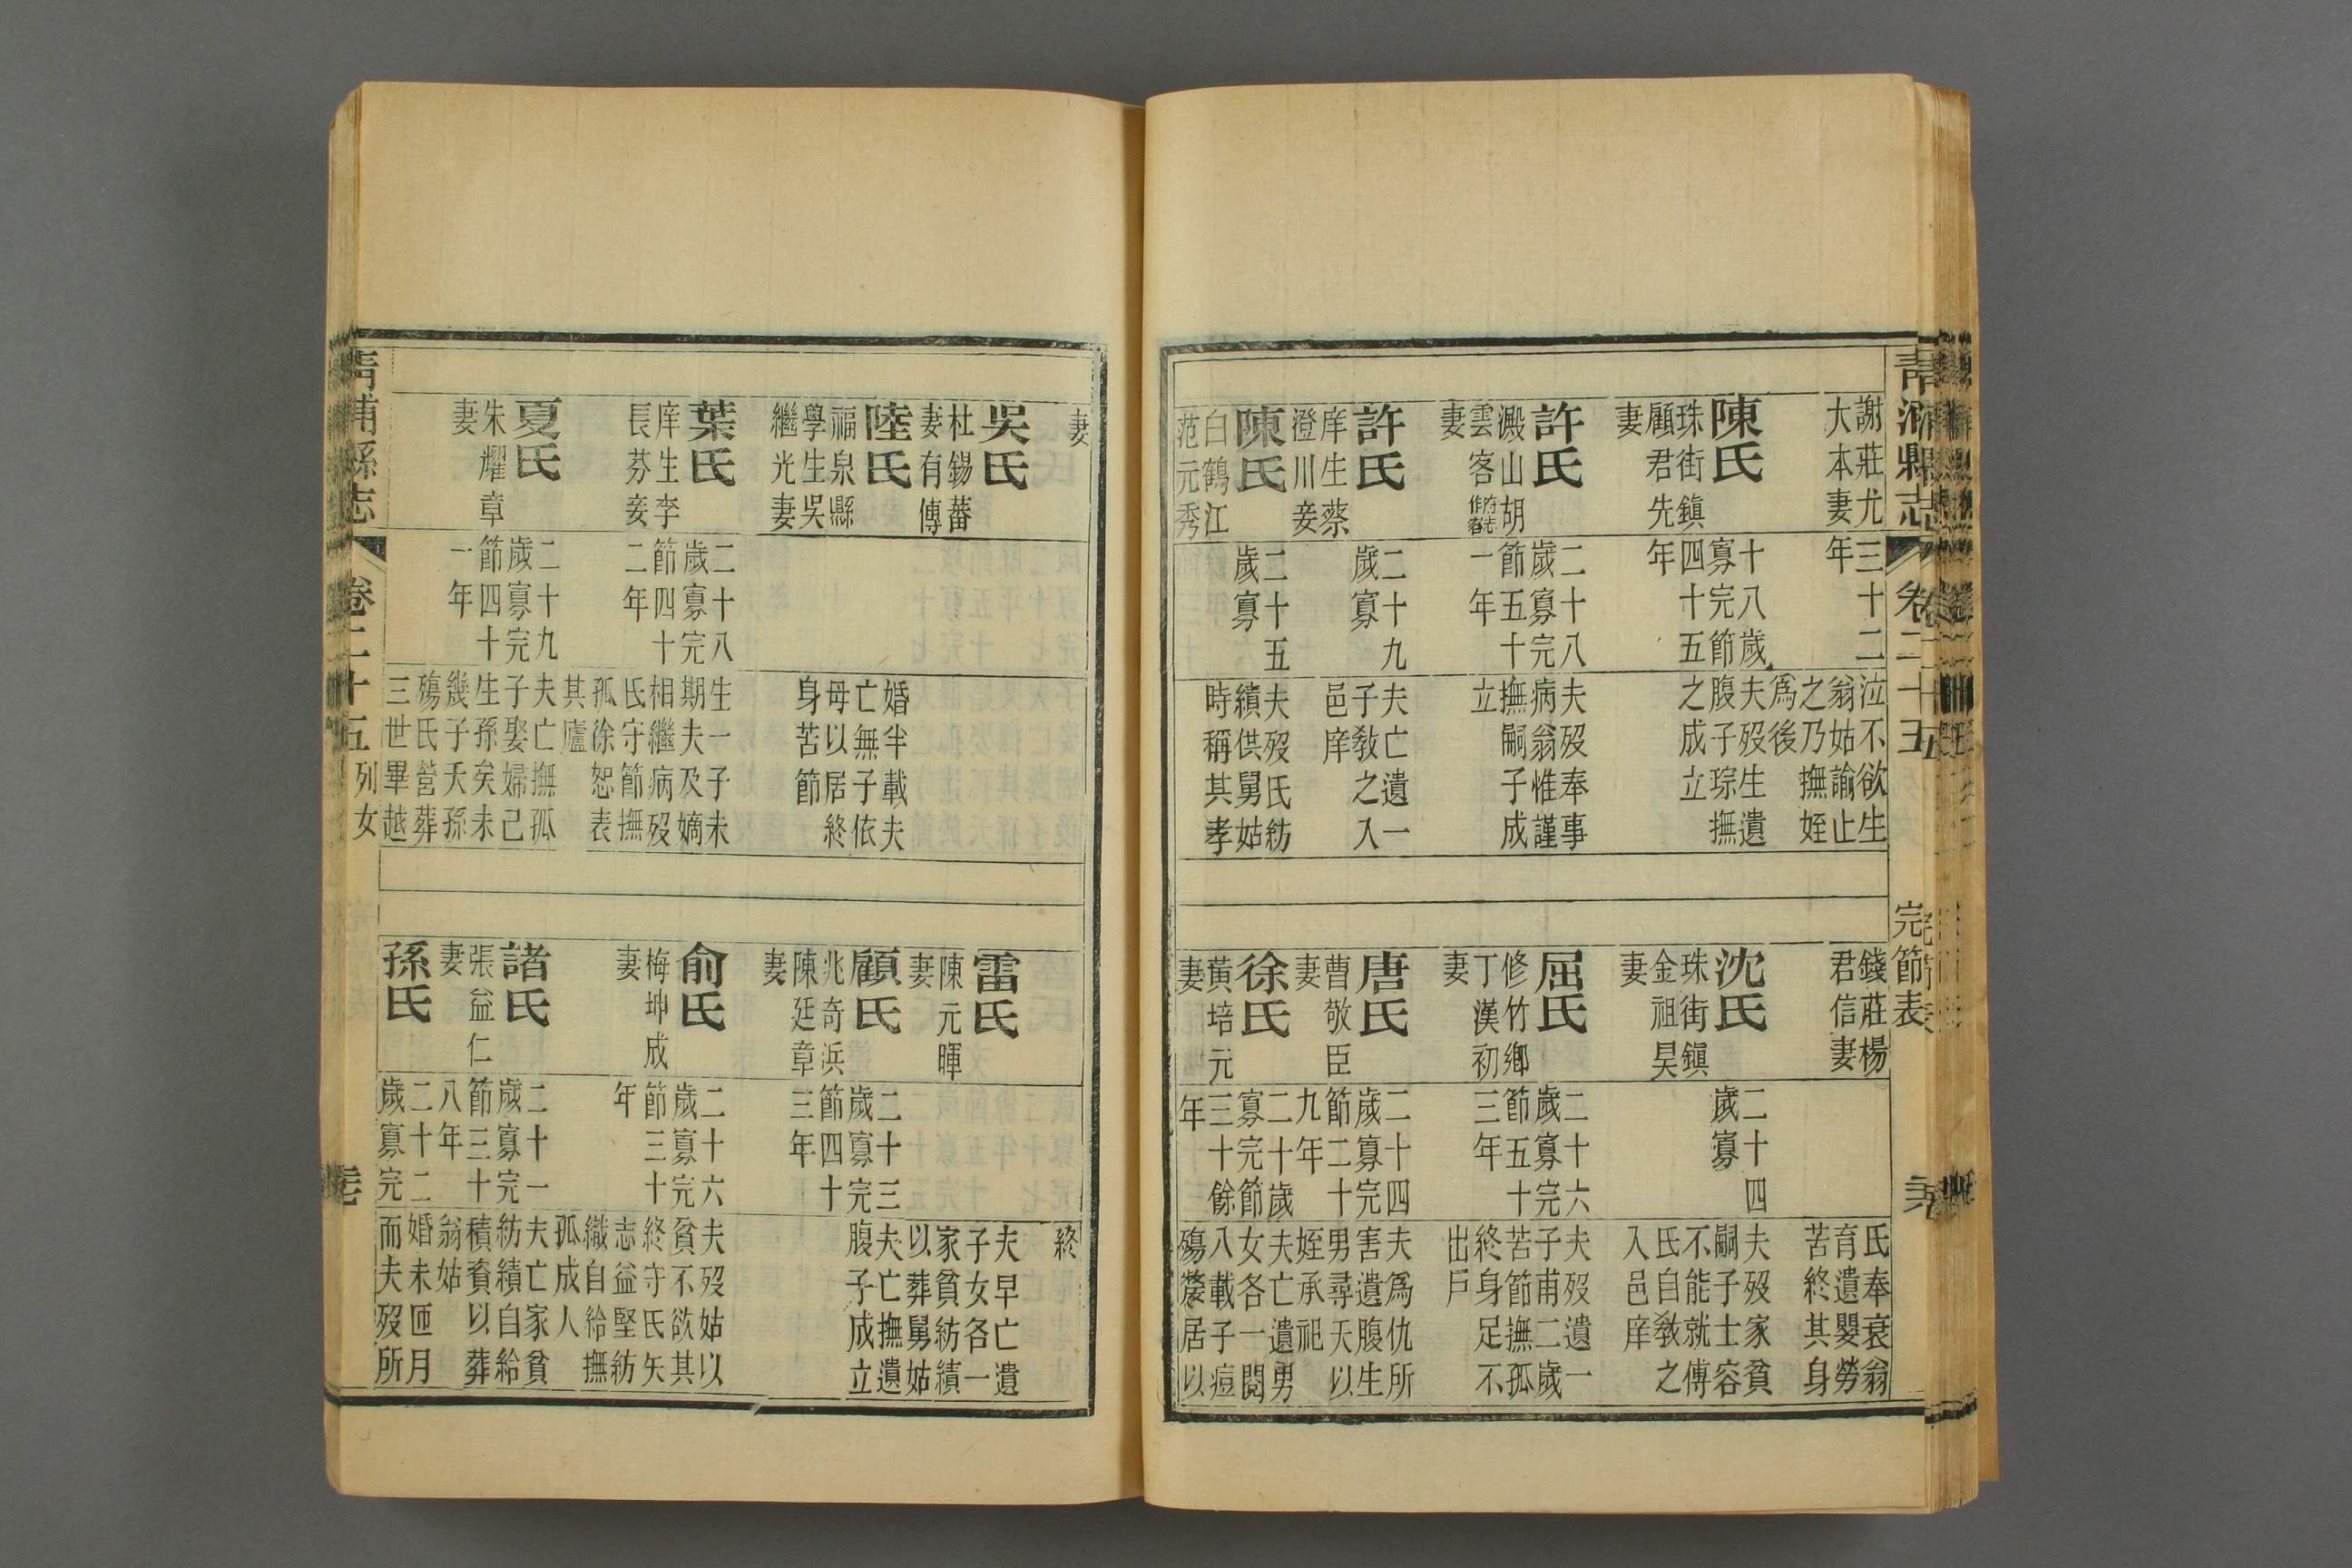 青浦縣志
卷二十五
完節表
謝莊尤
大本妻
三十二
年
泣不欲生
翁姑諭止
之乃撫姪
爲後
陳氏
珠街鎭
顧君先
妻
十八歲
寡完節
四十五
年
夫歿生遺
腹子琮撫
之成立
許氏
澱山胡
雲客
妻
二十八
歲寡完
節五十
一年
夫歿奉事
病翁惟謹
撫嗣子成
立
許氏
庠生蔡
澄川妾
二十九
歲寡
夫亡遺一
子敎之入
邑庠
陳氏
白鶴江
范元秀
二十五
歲寡
夫歿氏紡
績供舅姑
時稱其孝
錢莊楊
君信妻
氏奉衰翁
育遺嬰勞
苦終其身
沈氏
珠街鎭
金祖昊
妻
二十四
歲寡
夫歿家貧
嗣子士容
不能就傅
氏自敎之
入邑庠
屈氏
修竹鄉
丁漢初
妻
二十六
歲寡完
節五十
三年
夫歿遺一
子甫二歲
苦節撫孤
終身足不
出戶
唐氏
曹敬臣
妻
二十四
歲寡完
節二十
九年
夫爲仇所
害遺腹生
男尋夭以
姪承祀
徐氏
黃培元
妻
二十歲
寡完節
三十餘
年
夫亡遺男
女各一閱
八載子痘
殤嫠居以
妻
吳氏
杜錫蕃
妻有傳
陸氏
福泉縣
學生吳
繼光妻
婚半載夫
亡無子依
母以居終
身苦節
葉氏
庠生李
長芬妾
二十八
歲寡完
節四十
二年
生一子未
期夫及嫡
相繼病歿
氏守節撫
孤徐恕表
其廬
夏氏
朱燿章
妻
二十九
歲寡完
節四十
一年
夫亡撫孤
子娶婦已
生孫矣未
幾子夭孫
殤氏營葬
三世畢越
終
雷氏
陳元暉
妻
夫早亡遺
子女各一
家貧紡績
以葬舅姑
顧氏
兆奇浜
陳廷章
妻
二十三
歲寡完
節四十
三年
夫亡撫遺
腹子成立
俞氏
梅坤成
妻
二十六
歲寡完
節三十
年
夫歿姑以
貧不欲其
終守氏矢
志益堅紡
織自給撫
孤成人
諸氏
張益仁
妻
二十一
歲寡完
節三十
八年
夫亡家貧
紡績自給
積資以葬
翁姑
孫氏
二十二
歲寡完
婚未匝月
而夫歿所
青浦縣志
卷二十五
列女